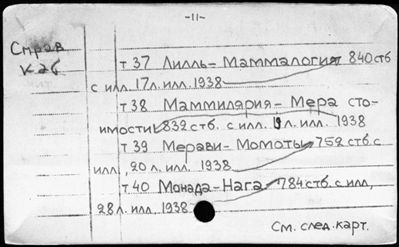 -11-
Справ
К-26
т 37 Лилль- Маммалогия 840 стб
с илл. 17 л. илл. 1938
т 38 Маммилярия- Мера сто-
имости 832 стб. с илл. 19 л. илл. 1938
т 39 Мерави- Момоты 752 стб. с
илл, 20 л. илл. 1938
т. 40 Монада- Нага 784 стб. с илл,
28 л. илл. 1938
См. след. карт.